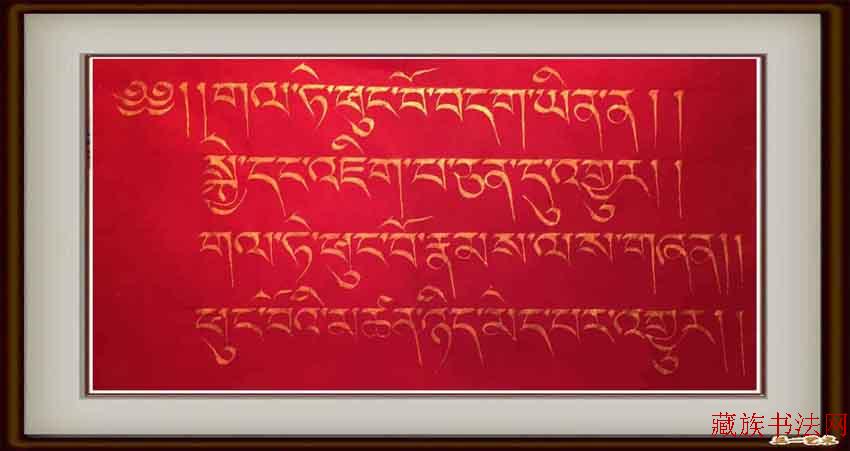 ༄༅།།གལ་ཏེ་ཕུང་པོ་བདག་ཡིན་ན།།
སྐྱེ་དང་འཇིག་པ་ཅན་དུ་འགྱུར།།
གལ་ཏེ་ཕུང་པོ་རྣམས་ལས་གཞན།།
ཕུང་པོའི་མཚན་ཉིད་མེད་པར་འགྱུར།།
藏族书法网